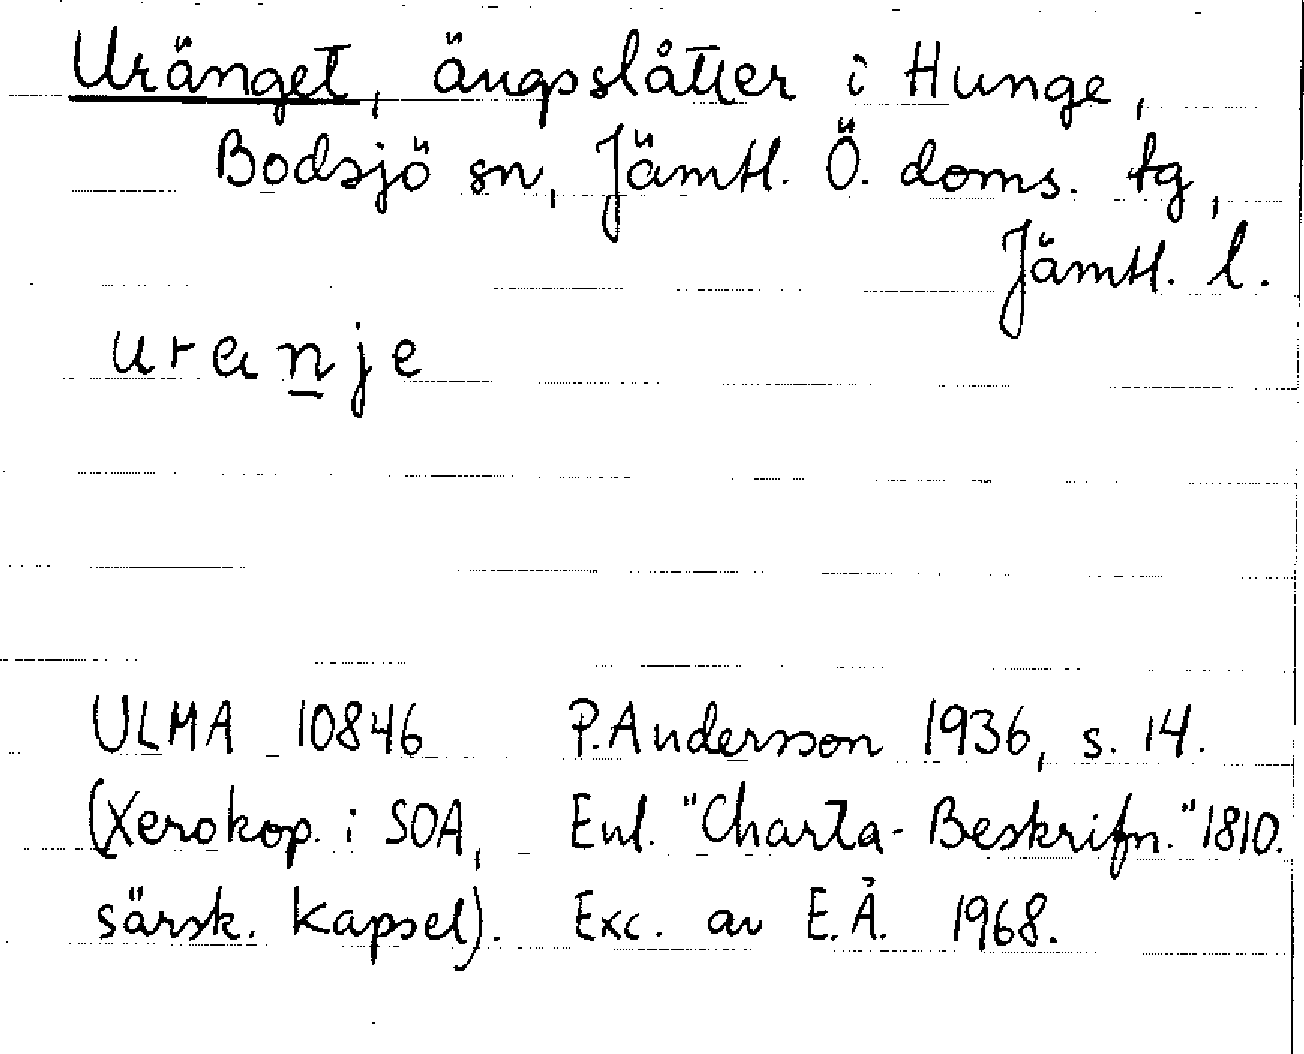 Uränget, ängsslåtter i Hunge,
Bodsjö sn, Jämtl. Ö. doms. tg,
Jämtl. l.
uranje
ULMA 10846 P. Andersson 1936, s. 14.
(Xerokop. i SOA, Enl. "Charta-Beskrifn." 1810.
särsk. kapsel). Exc. av E.Å. 1968.